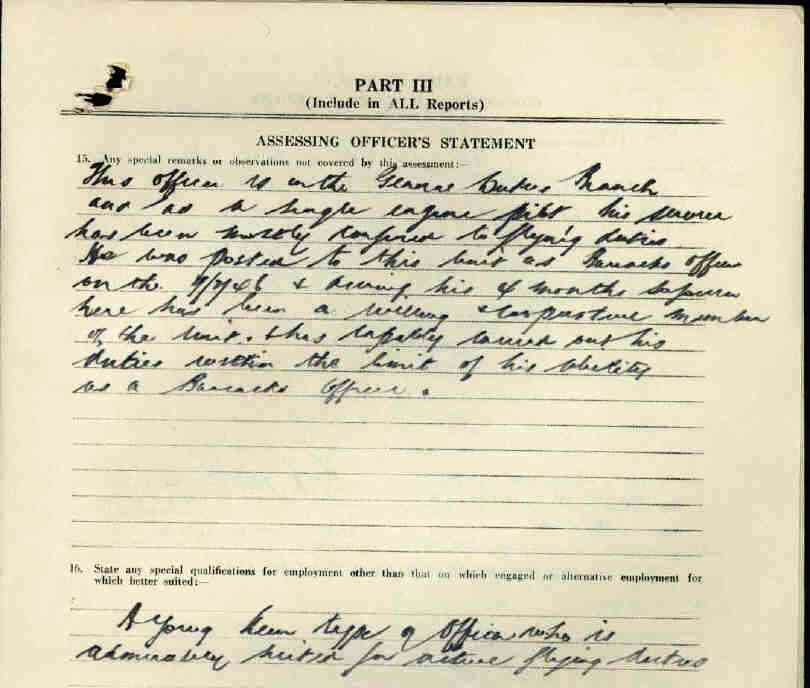 PART III
(Include in ALL Reports)
ASSESSING OFFICER'S STATEMENT
15. Any special remarks or observations not covered by this assessment:—
This officer is in the General Duties Branch
and as a single engine pilot his service
has been mostly confined to flying duties
He was posted to this unit as Barracks Officer
on the & during his 4 months
here has been a willing & member
of the unit. & has capably carried out his
duties within the limit of his ability
as a Barracks Officer.
16. State any special qualifications for employment other than that on which engaged or alternative employment for
which better suited:—
A young keen type of Officer who is
admirably suited for active flying duties